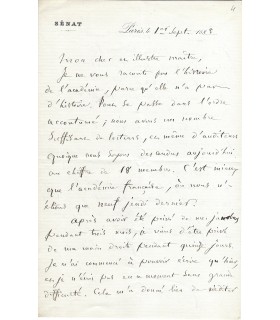 4
SÉNAT
Paris le 1er Sept. 188
Mon cher et illustre maître,
Je ne vous raconte pas l'histoire
de l'académie, parce qu'elle n'a pas
d'histoire. Tout se passe dans l'ordre
accoutumé ; nous avons un nombre
suffisant de lecteurs, et même d'auditeurs
quoique nous soyons descendus aujourd'hui
au chiffre de 18 membres. C'est mieux
que l'académie française, où nous n'
étions que neuf jeudi dernier.
Après avoir été privé de mes jambes
pendant trois mois, je viens d'être privé
de ma main droite pendant quinze jours.
Je n'ai commencé à pouvoir écrire qu'hier
et je n'écris pas en ce moment sans grande
difficulté. Cela m'a donné lieu de méditer